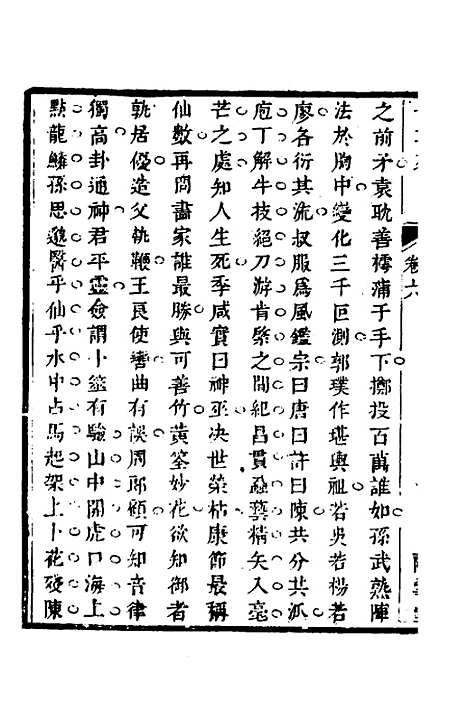 之前矛袁耽善樗蒲于手下擲投百萬誰如孫武熟陣
法於胸中變化三千叵測郭璞作堪輿祖若吳若楊若
廖各衍其流叔服爲風鑑宗曰唐曰許曰陳共分共派
庖丁解牛枝絕刀游肯綮之間紀昌貫蝨藝精矢入毫
芒之處知人生死季咸實曰神巫决世榮枯康節最稱
仙數再問畵家誰最勝與可善竹黃筌妙花欲知御者
孰居優造父執鞭王良使轡曲有誤周郎顧可知音律
獨高卦通神君平靈僉謂卜筮有驗山中開虎口海上
點龍鱗孫思邈醫乎仙乎水中占馬起架上卜花殘陳
卷六